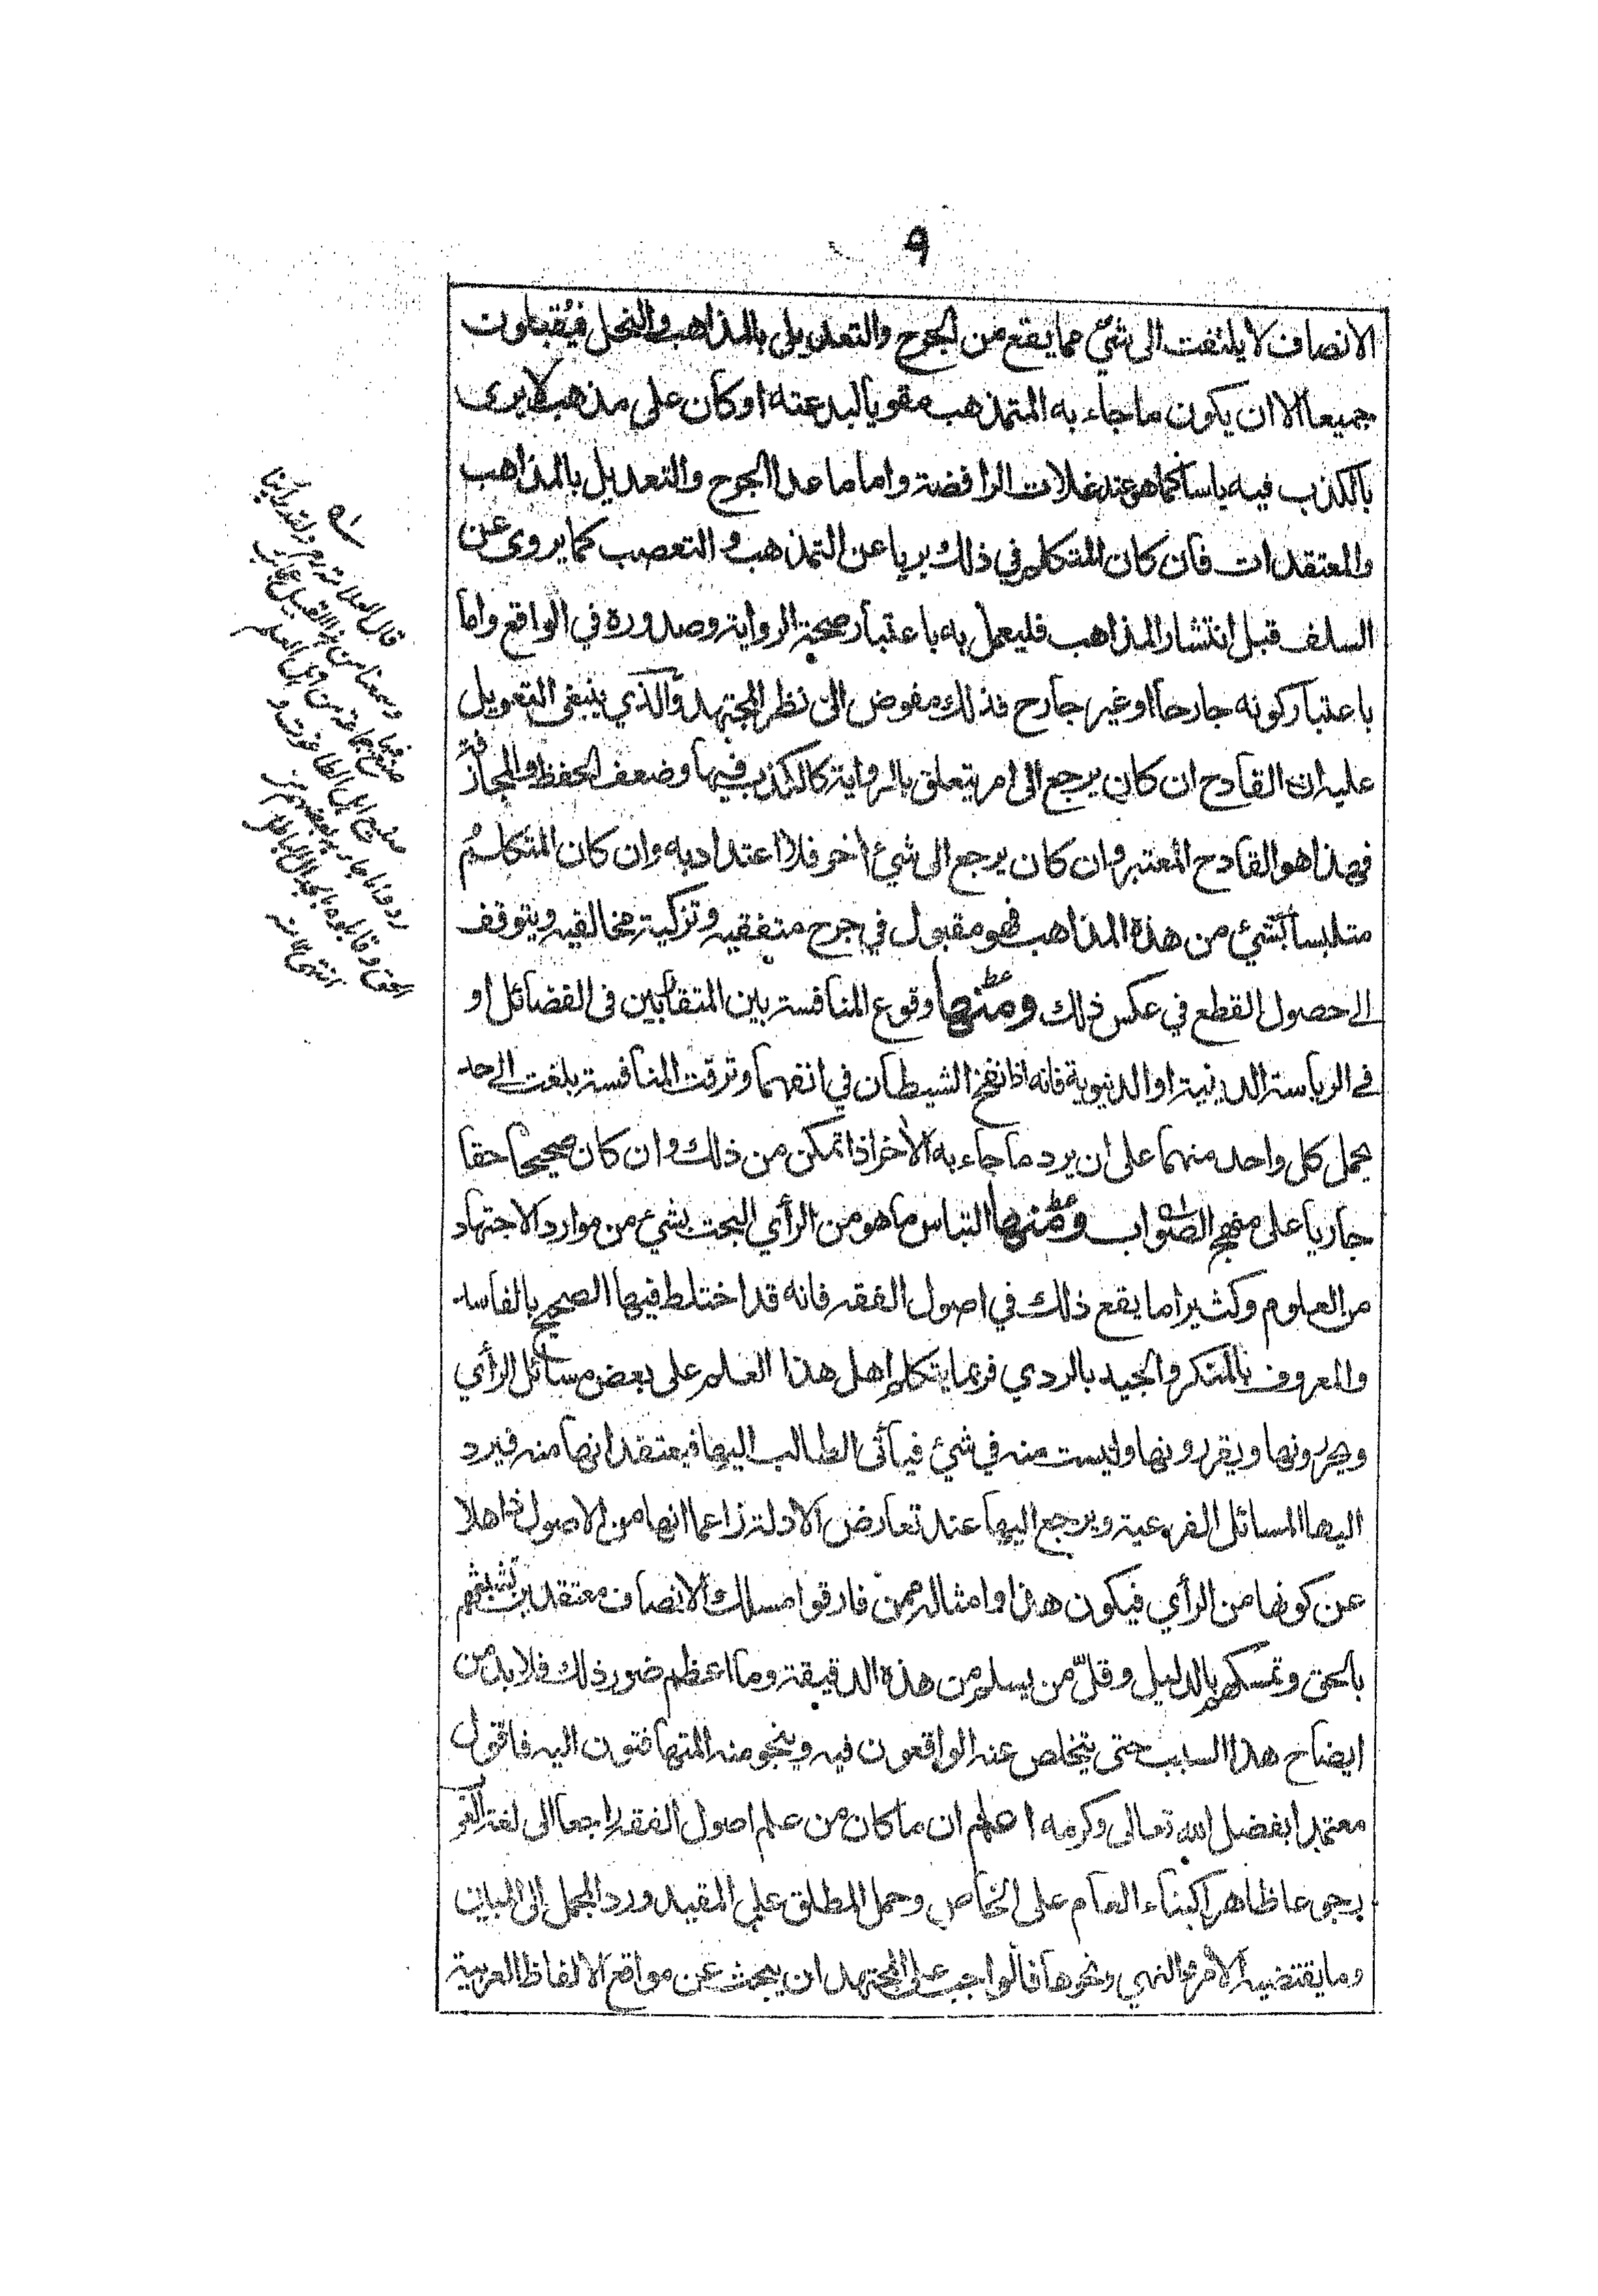 ٩
الانصاف لا يلتفت الى شيء مما يقع من الجرح والتعديل بالمذاهب والنحل فيُقبلون
جميعا الا ان يكون ما جاء به المتمذهب مقويا لبدعته او كان على مذهب لا يرى
بالكذب فيه باسا كما هو عند غلات الرافضة واما ما عدا الجرح والتعديل بالمذاهب
والمعتقدات فان كان المتكلم في ذلك بريا عن التمذهب والتعصب كما يروى عن
السلف قبل انتشار المذاهب فليعمل به باعتبار صحة الرواية وصدوره في الواقع واما
باعتبار كونه جارحا او غير جارح فذلك مفوض الى نظر المجتهد والذي ينبغي التعويل
عليه ان القادح ان كان يرجع الى امر يتعلق بالرواية كالكذب فيها وضعف الحفظ والمجازفة
فهذا هو القادح المعتبر وان كان يرجع الى شيئ اخر فلا اعتداد به وان كان المتكلمُ
متلبسا بشيئ من هذه المذاهب فهو مقبول في جرح متفقيه وتزكية مخالفيه ويتوقف
الى حصول القطع في عكس ذلك ومنها وقوع المنافسة بين المتقابين في الفضائل او
في الرياسة الدينية او الدنيوية فانه اذا نفخ الشيطان في انفهما وترقت المنافسة بلغت الى حد
يحمل كل واحد منهما على ان يرد ما جاء به الاخر اذا تمكن من ذلك وان كان صحيحا حقا
جاريا على منهج الصواب ومنها التباس ما هو من الرأي البحت بشيئ من موارد الاجتهاد
من العلوم وكثيرا ما يقع ذلك في اصول الفقه فانه قد اختلط فيها الصحيح بالفاسد
والمعروف بالمنكر والجيد بالردي فربما يتكلم اهل هذا العلم على بعض مسائل الرأي
ويحررونها ويقررونها وليست منه في شيئ فيأتي الطالب اليها فيعتقد انها منه فيرد
اليها المسائل الفرعية ويرجع اليها عند تعارض الادلة زاعما انها من الاصول ذاهلا
عن كونها من الرأي فيكون هذا وامثاله ممن فارقوا مسلك الانصاف معتقدين تشبثهم
بالحق وتمسكهم بالدليل وقلّ من يسلم من هذه الدقيقة وما اعظم ضرر ذلك فلا بد من
ايضاح هذا السبب حتى يتخلص عنه الواقعون فيه وينجو منه المتهافتون اليه فاقول
معتمدا بفضل الله تعالى وكرمه اعلم ان ما كان من علم اصول الفقه راجعا الى لغة العرب
رجوعا ظاهرا كبناء العام على الخاص وحمل المطلق على المقيد ورد المجمل الى المبين
وما يقتضيه الامر والنهي ونحوها فالواجب على المجتهد ان يبحث عن مواقع الالفاظ العربية